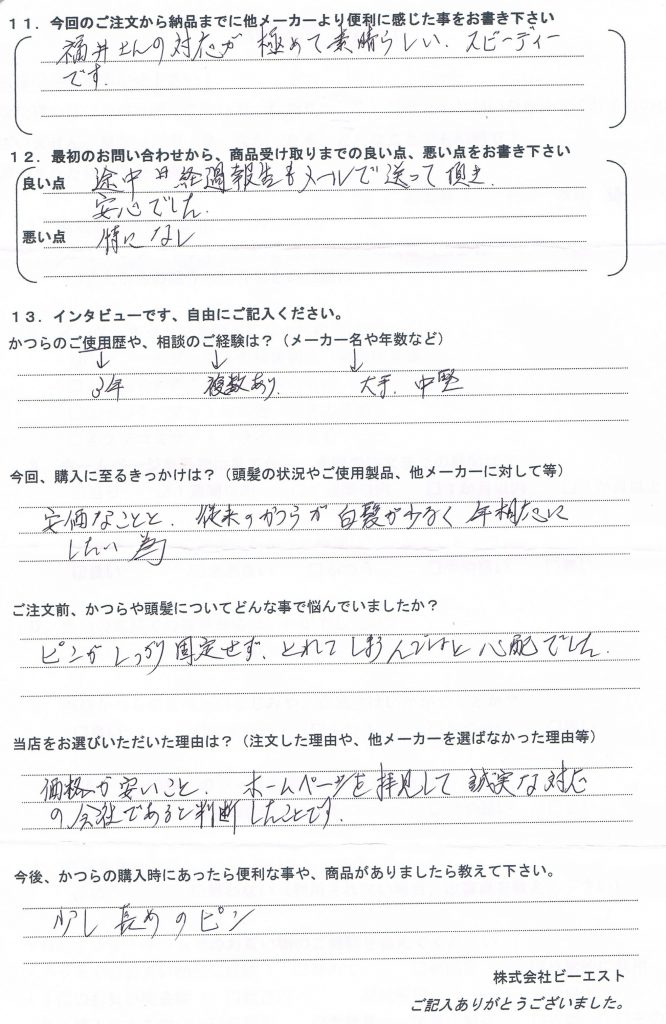 １１．今回のご注文から納品までに他メーカーより便利に感じた事をお書き下さい
福井さんの対応が極めて素晴らしい．スピーディー
です．
１２．最初のお問い合わせから、商品受け取りまでの良い点、悪い点をお書き下さい
良い点 途中日経過報告もメールで送って頂き．
安心でした．
悪い点 特になし
１３．インタビューです、自由にご記入ください。
かつらのご使用歴や、相談のご経験は？（メーカー名や年数など）
↓ ↓ ↓
3年 複数あり． 大手．中堅
今回、購入に至るきっかけは？（頭髪の状況やご使用製品、他メーカーに対して等）
安価なことと．従来のかつらが白髪が少なく年相応に
したい為
ご注文前、かつらや頭髪についてどんな事で悩んでいましたか？
ピンがしっかり固定せず、とれてしまうんではと心配でした．
当店をお選びいただいた理由は？（注文した理由や、他メーカーを選ばなかった理由等）
価格が安いこと．ホームページを拝見して誠実な対応
の会社であると判断したことです．
今後、かつらの購入時にあったら便利な事や、商品がありましたら教えて下さい。
少し長めのピン
株式会社ビーエスト
ご記入ありがとうございました。